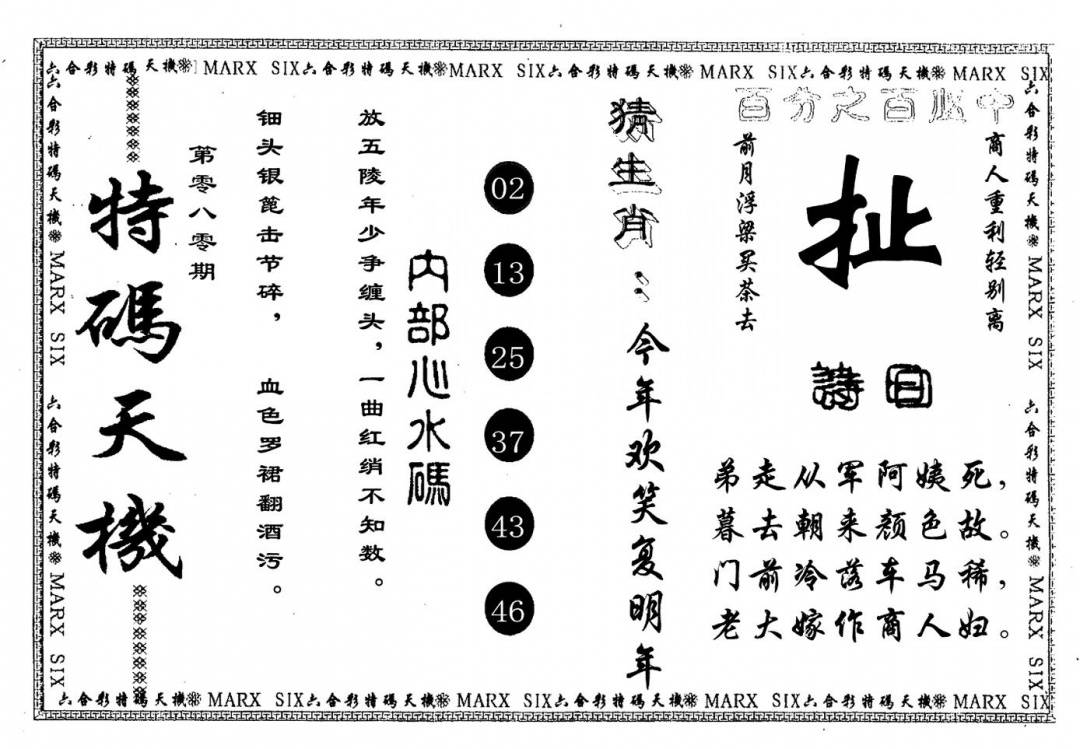 六合彩特碼天機※ MARX SIX六合彩特碼天機※MARX SIX六合彩特碼天機※ MARX SIX六合彩特碼天機※ MARX SIX
百分之百必中
商人重利轻别离
扯
前月浮梁买茶去
詩曰
弟走从军阿姨死，
暮去朝来颜色故。
门前冷落车马稀，
老大嫁作商人妇。
猜生肖：今年欢笑复明年
02
13
25
37
43
46
内部心水碼
放五陵年少争缠头，一曲红绡不知数。
钿头银篦击节碎， 血色罗裙翻酒污。
第零八零期
特碼天機
六合彩特碼天機※ MARX SIX 六合彩特碼天機※ MARX SIX
六合彩特碼天機※ MARX SIX 六合彩特碼天機※ MARX SIX
六合彩特碼天機※ MARX SIX六合彩特碼天機※ MARX SIX六合彩特碼天機※ MARX SIX六合彩特碼天機※ MARX SIX